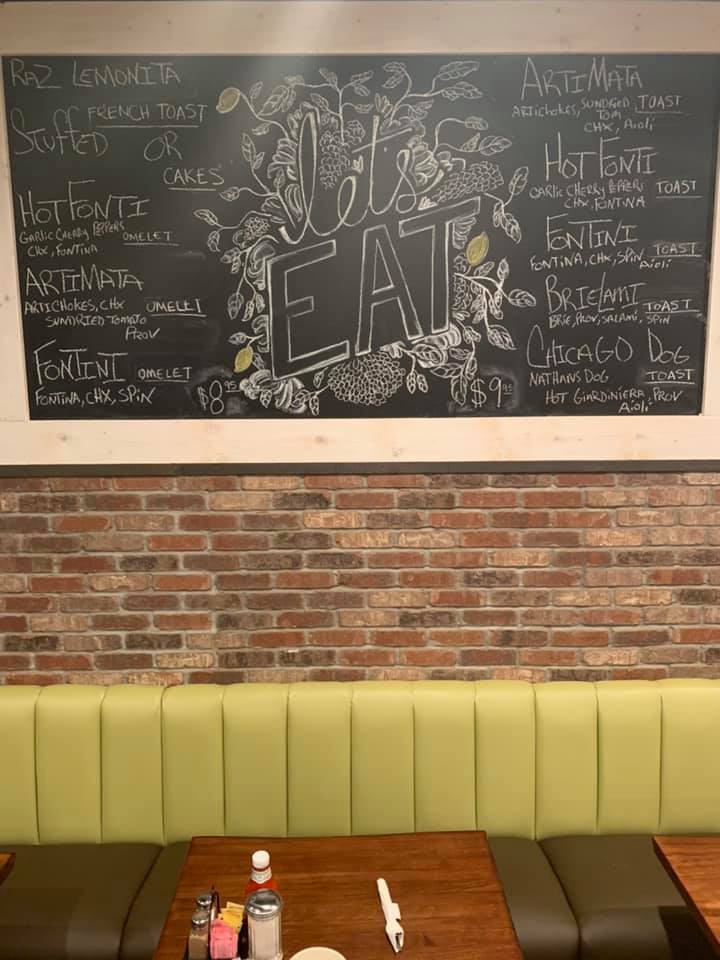 RAZ LEMONITA
Stuffed FRENCH TOAST
OR
CAKES
HOT FONTI
GARLIC CHERRY PEPPERS OMELET
CHX, FONTINA
ARTIMATA
ARTICHOKES, CHX OMELET
SUNDRIED TOMATO
PROV
FONTINI OMELET
FONTINA, CHX, SPIN
$8.95
let's
EAT
$9.95
ARTIMATA
ARTICHOKES, SUNDRIED TOAST
TOM
CHX, Aioli
HOT FONTI
GARLIC CHERRY PEPPERS TOAST
CHX, FONTINA
FONTINI TOAST
FONTINA, CHX, SPIN, Aioli
BRIELAMI TOAST
BRIE, PROV, SALAMI, SPIN
CHICAGO DOG
NATHANS DOG TOAST
HOT GIARDINIERA, PROV
Aioli